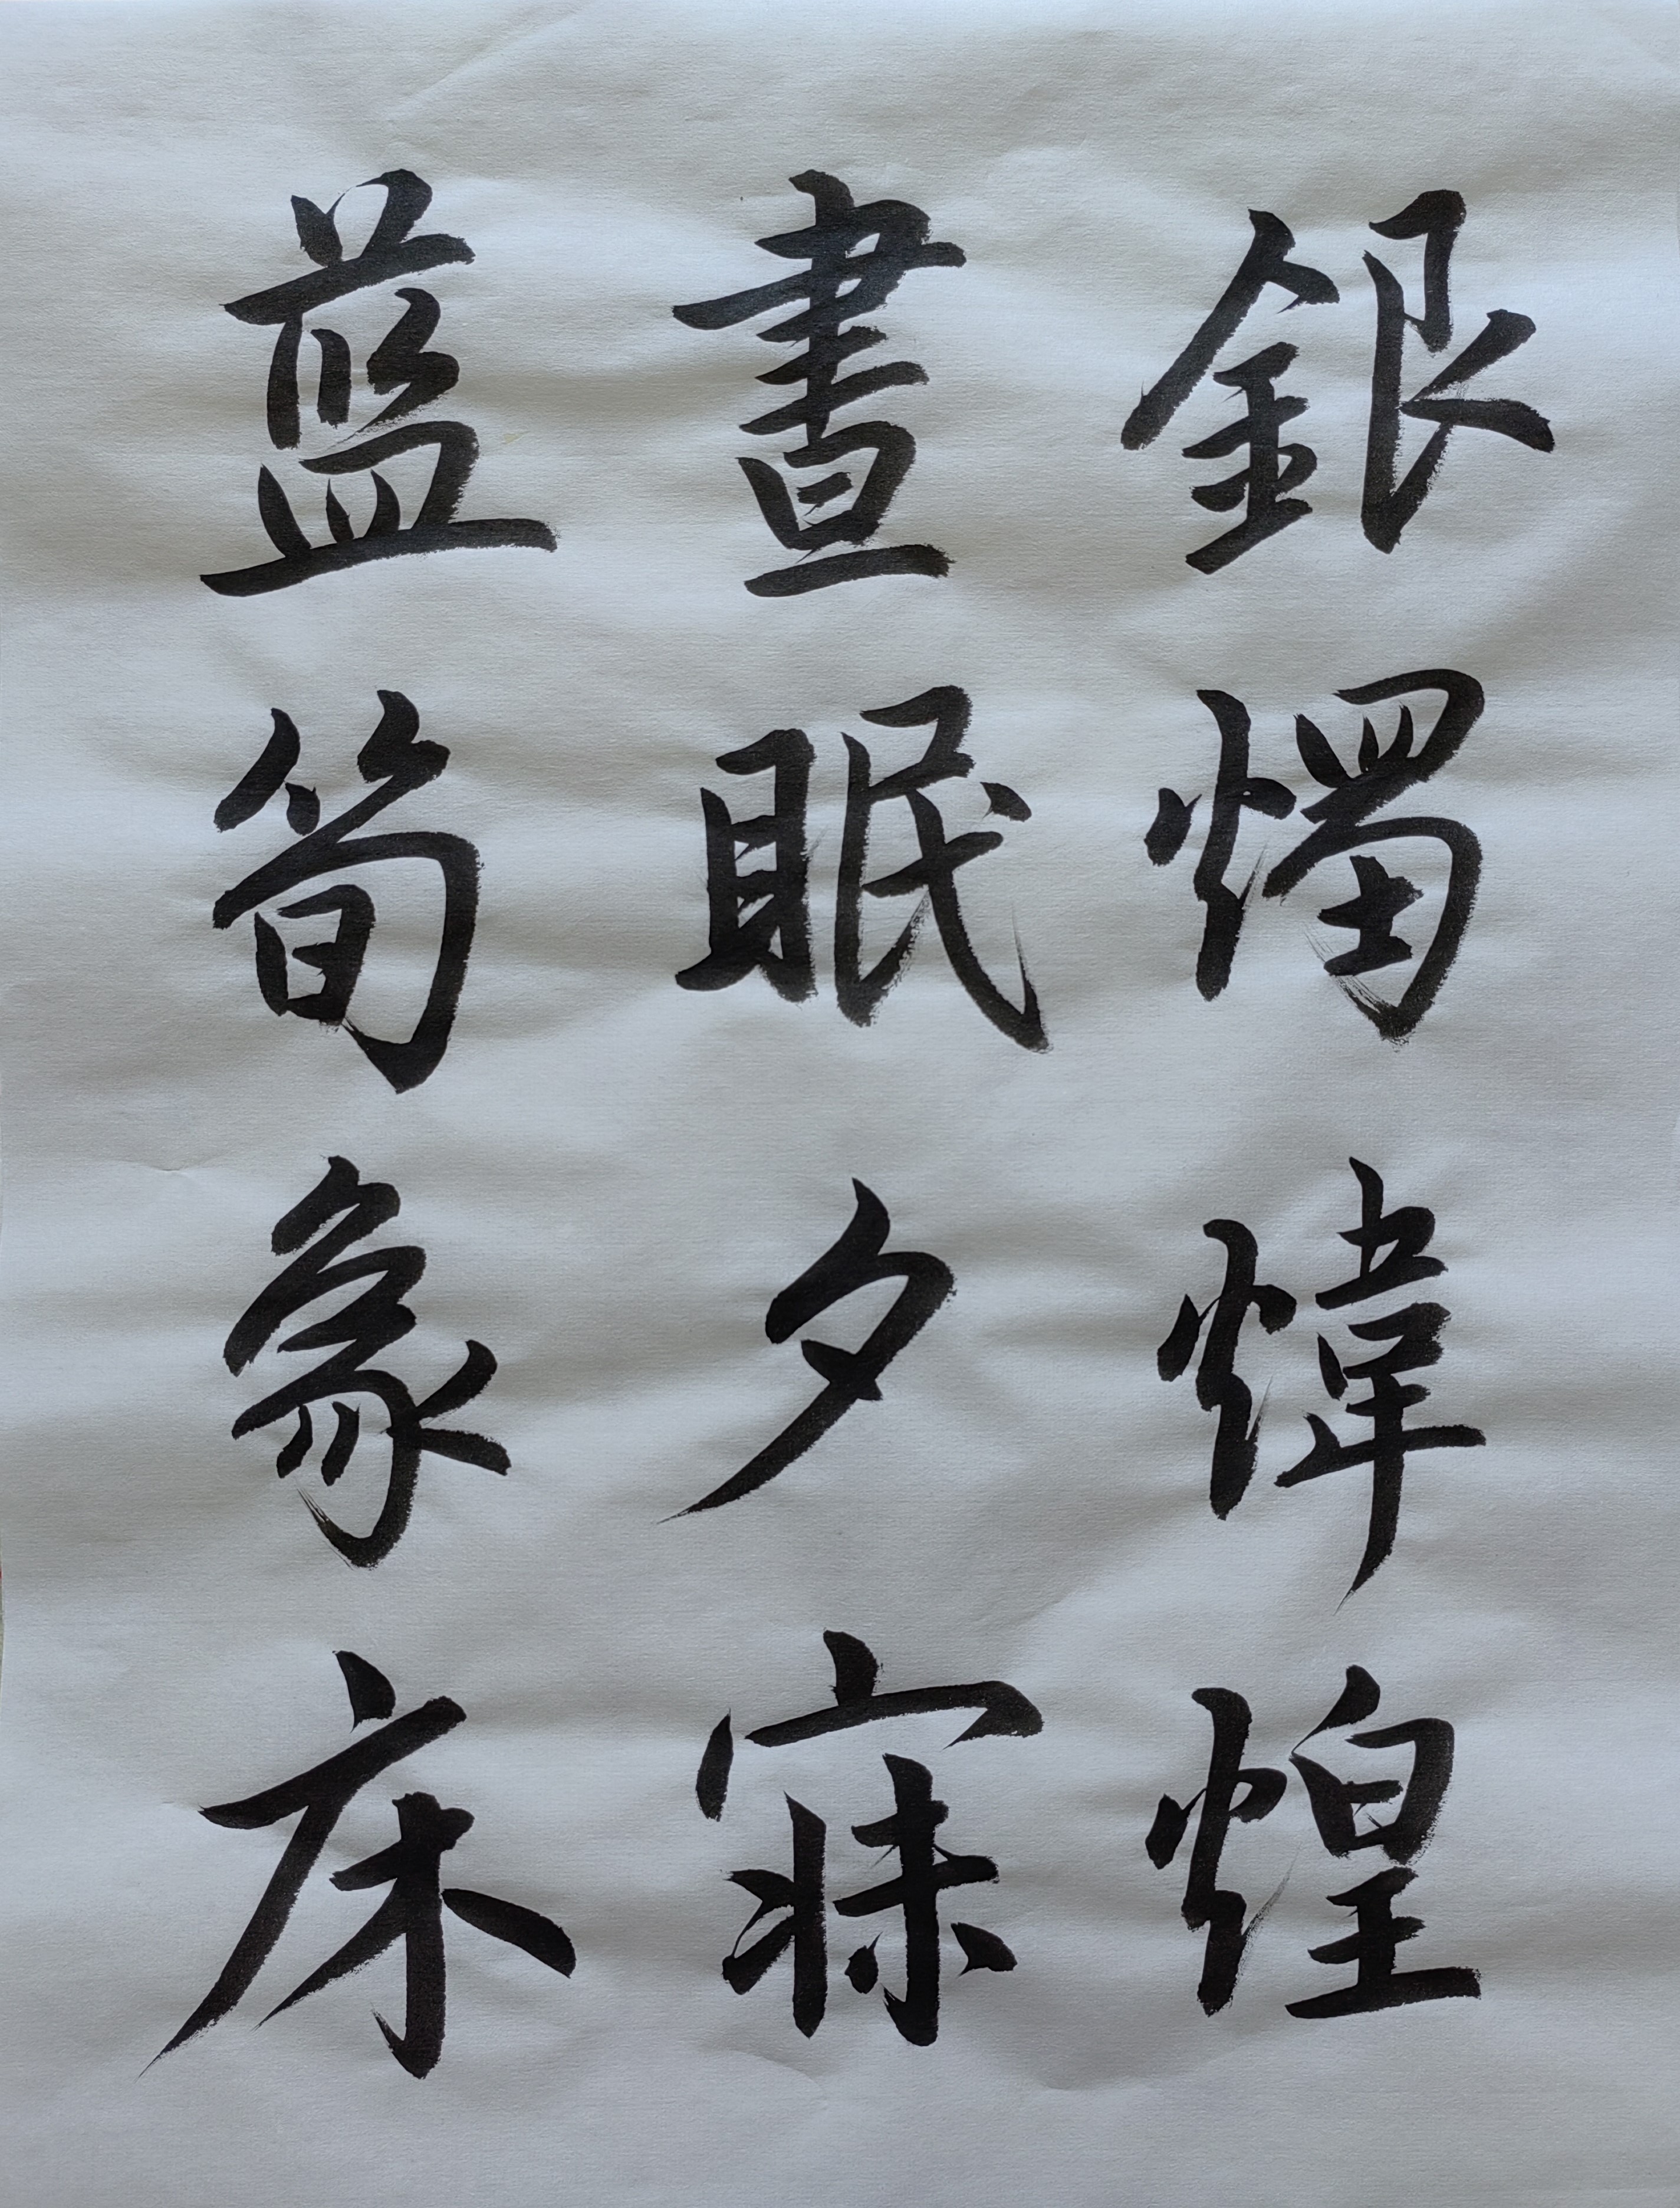 銀燭煒煌
晝眠夕寐
蓝筍象床